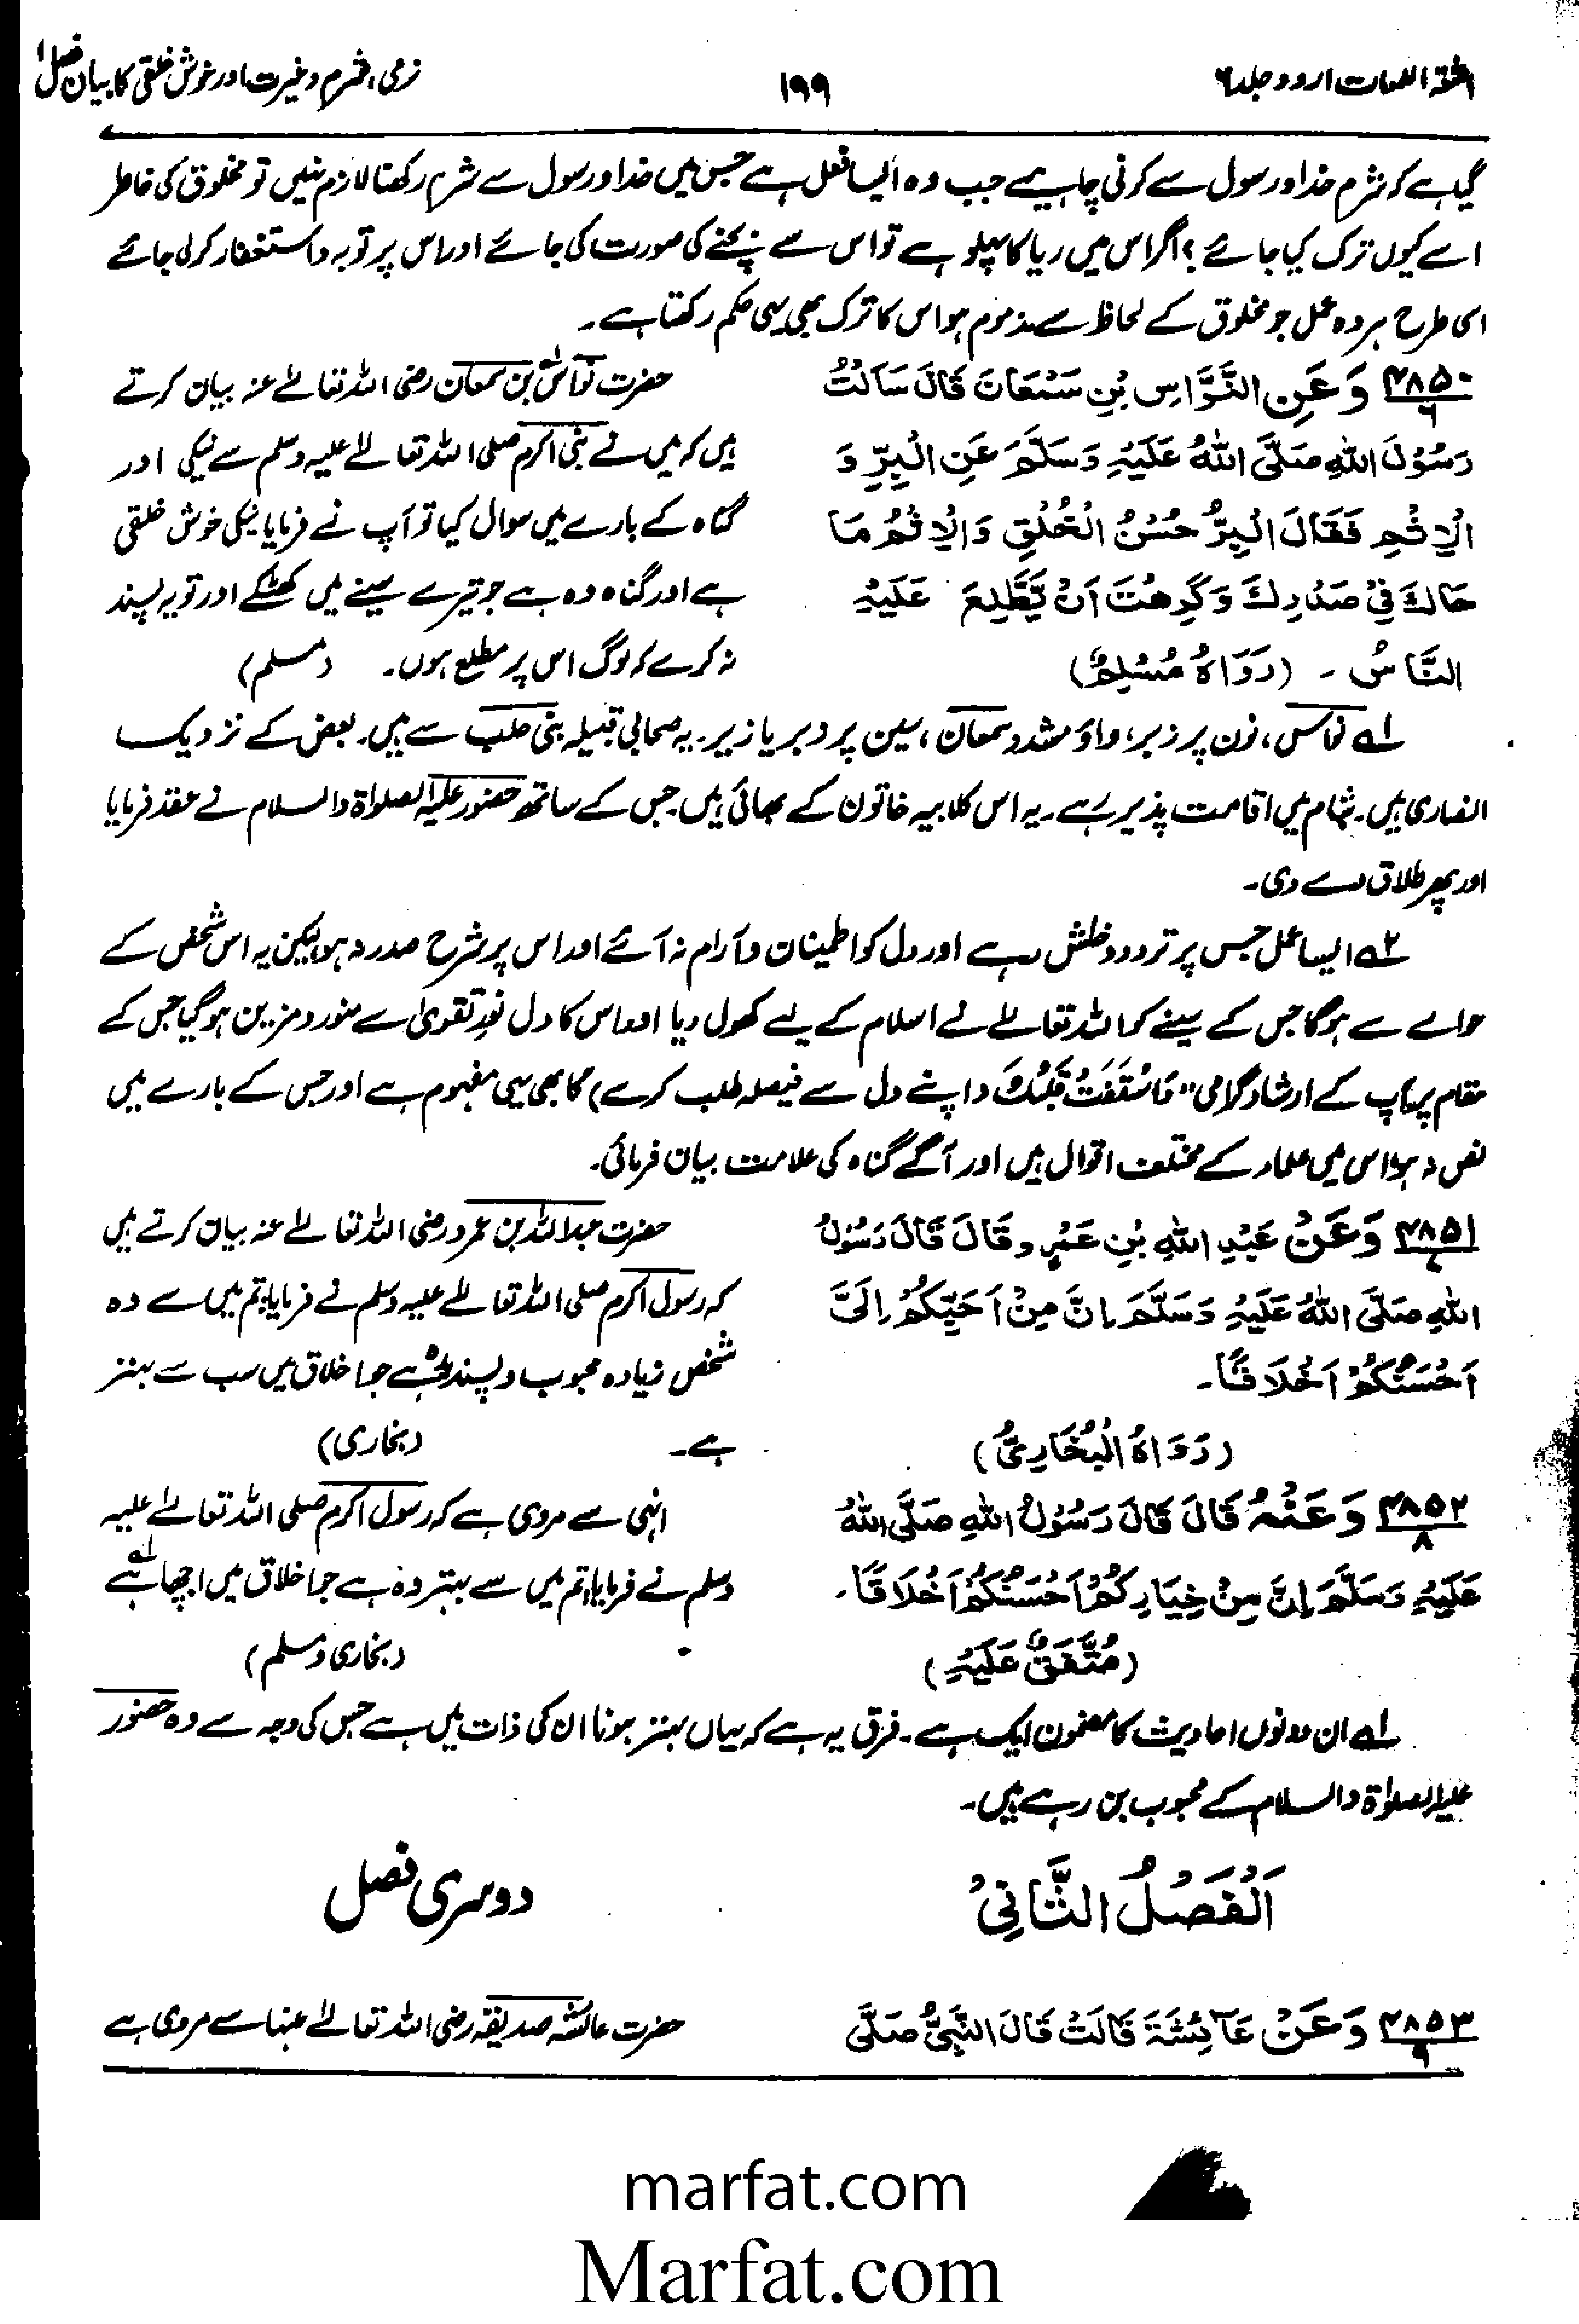 اشعۃ اللمعات اردو جلد ۶
۱۹۹
نرمی، شرم و غیرت اور خوش خلقی کا بیان فصل ۱
گیا ہے کہ شرم خدا و رسول سے کرنی چاہیے جب وہ ایسا فعل ہے جس میں خدا و رسول سے شرم رکھنا لازم نہیں تو مخلوق کی خاطر
اسے کیوں ترک کیا جائے؟ اگر اس میں ریا کا پہلو ہے تو اس سے بچنے کی صورت کی جائے اور اس پر توبہ و استغفار کر لی جائے
اسی طرح ہر وہ عمل جو مخلوق کے لحاظ سے مذموم ہو اس کا ترک بھی یہی حکم رکھتا ہے۔
۴۸۵۰/۶ وَعَنِ النَّوَّاسِ بْنِ سَمْعَانَ قَالَ سَاَلْتُ
رَسُوْلَ اللهِ صَلَّى اللهُ عَلَيْهِ وَسَلَّمَ عَنِ الْبِرِّ وَ
الْاِثْمِ فَقَالَ الْبِرُّ حُسْنُ الْخُلُقِ وَالْاِثْمُ مَا
حَاكَ فِيْ صَدْرِكَ وَكَرِهْتَ اَنْ يَّطَّلِعَ عَلَيْهِ
النَّاسُ ۔ (رَوَاهُ مُسْلِمٌ)
حضرت نواسؓ بن سمعان رضی اللہ تعالےٰ عنہ بیان کرتے
ہیں کہ میں نے نبی اکرم صلی اللہ تعالےٰ علیہ وسلم سے نیکی اور
گناہ کے بارے میں سوال کیا تو آپ نے فرمایا نیکی خوش خلقی
ہے اور گناہ وہ ہے جو تیرے سینے میں کھٹکے اور تو یہ پسند
نہ کرے کہ لوگ اس پر مطلع ہوں۔ (مسلم)
۱ے نواس، نون پر زبر، واؤ مشدد سمعان، سین پر زبر یا زیر۔ یہ صحابی قبیلہ بنی کلب سے ہیں۔ بعض کے نزدیک
انصاری ہیں۔ شام میں اقامت پذیر رہے۔ یہ اس کلابیہ خاتون کے بھائی ہیں۔ جس کے ساتھ حضور علیہ الصلواۃ والسلام نے عقد فرمایا
اور پھر طلاق دے دی۔
۲ے ایسا عمل جس پر تردد و خلش رہے اور دل کو اطمینان و آرام نہ آئے اور اس پر شرح صدر نہ ہو لیکن یہ اس شخص کے
حوالے سے ہوگا جس کے سینے کو اللہ تعالےٰ نے اسلام کے لیے کھول دیا اور اس کا دل نورِ تقویٰ سے منور و مزین ہوگیا جس کے
مقام پر آپ کے ارشاد گرامی "فَاسْتَفْتِ قَلْبَكَ (اپنے دل سے فیصلہ طلب کرے) کا بھی یہی مفہوم ہے اور جس کے بارے میں
نص نہ ہو اس میں علماء کے مختلف اقوال ہیں اور آگے گناہ کی علامت بیان فرمائی۔
۴۸۵۱/۷ وَعَنْ عَبْدِ اللهِ بْنِ عَمْرٍو قَالَ قَالَ رَسُوْلُ
اللهِ صَلَّى اللهُ عَلَيْهِ وَسَلَّمَ اِنَّ مِنْ اَحَبِّكُمْ اِلَيَّ
اَحْسَنُكُمْ اَخْلَاقًا۔
(رَوَاهُ الْبُخَارِيُّ)
حضرت عبداللہ بن عمرو رضی اللہ تعالےٰ عنہ بیان کرتے ہیں
کہ رسول اکرم صلی اللہ تعالےٰ علیہ وسلم نے فرمایا، تم میں سے وہ
شخص زیادہ محبوب و پسندیدہ ہے جو اخلاق میں سب سے بہتر
ہے۔ (بخاری)
۴۸۵۲/۸ وَعَنْهُ قَالَ قَالَ رَسُوْلُ اللهِ صَلَّى اللهُ
عَلَيْهِ وَسَلَّمَ اِنَّ مِنْ خِيَارِكُمْ اَحْسَنُكُمْ اَخْلَاقًا۔
(مُتَّفَقٌ عَلَيْهِ)
انہی سے مروی ہے کہ رسول اکرم صلی اللہ تعالےٰ علیہ
وسلم نے فرمایا، تم میں سے بہتر وہ ہے جو اخلاق میں اچھا ہے ۱ے
(بخاری و مسلم)
۱ے ان دونوں احادیث کا مضمون ایک ہے۔ فرق یہ ہے کہ یہاں بہتر ہونا ان کی ذات میں ہے جس کی وجہ سے وہ حضور
علیہ الصلواۃ والسلام کے محبوب بن رہے ہیں۔
اَلْفَصْلُ الثَّانِيْ
دوسری فصل
۴۸۵۳/۹ وَعَنْ عَآئِشَةَ قَالَتْ قَالَ النَّبِيُّ صَلَّى
حضرت عائشہ صدیقہ رضی اللہ تعالےٰ عنہا سے مروی ہے
marfat.com
Marfat.com